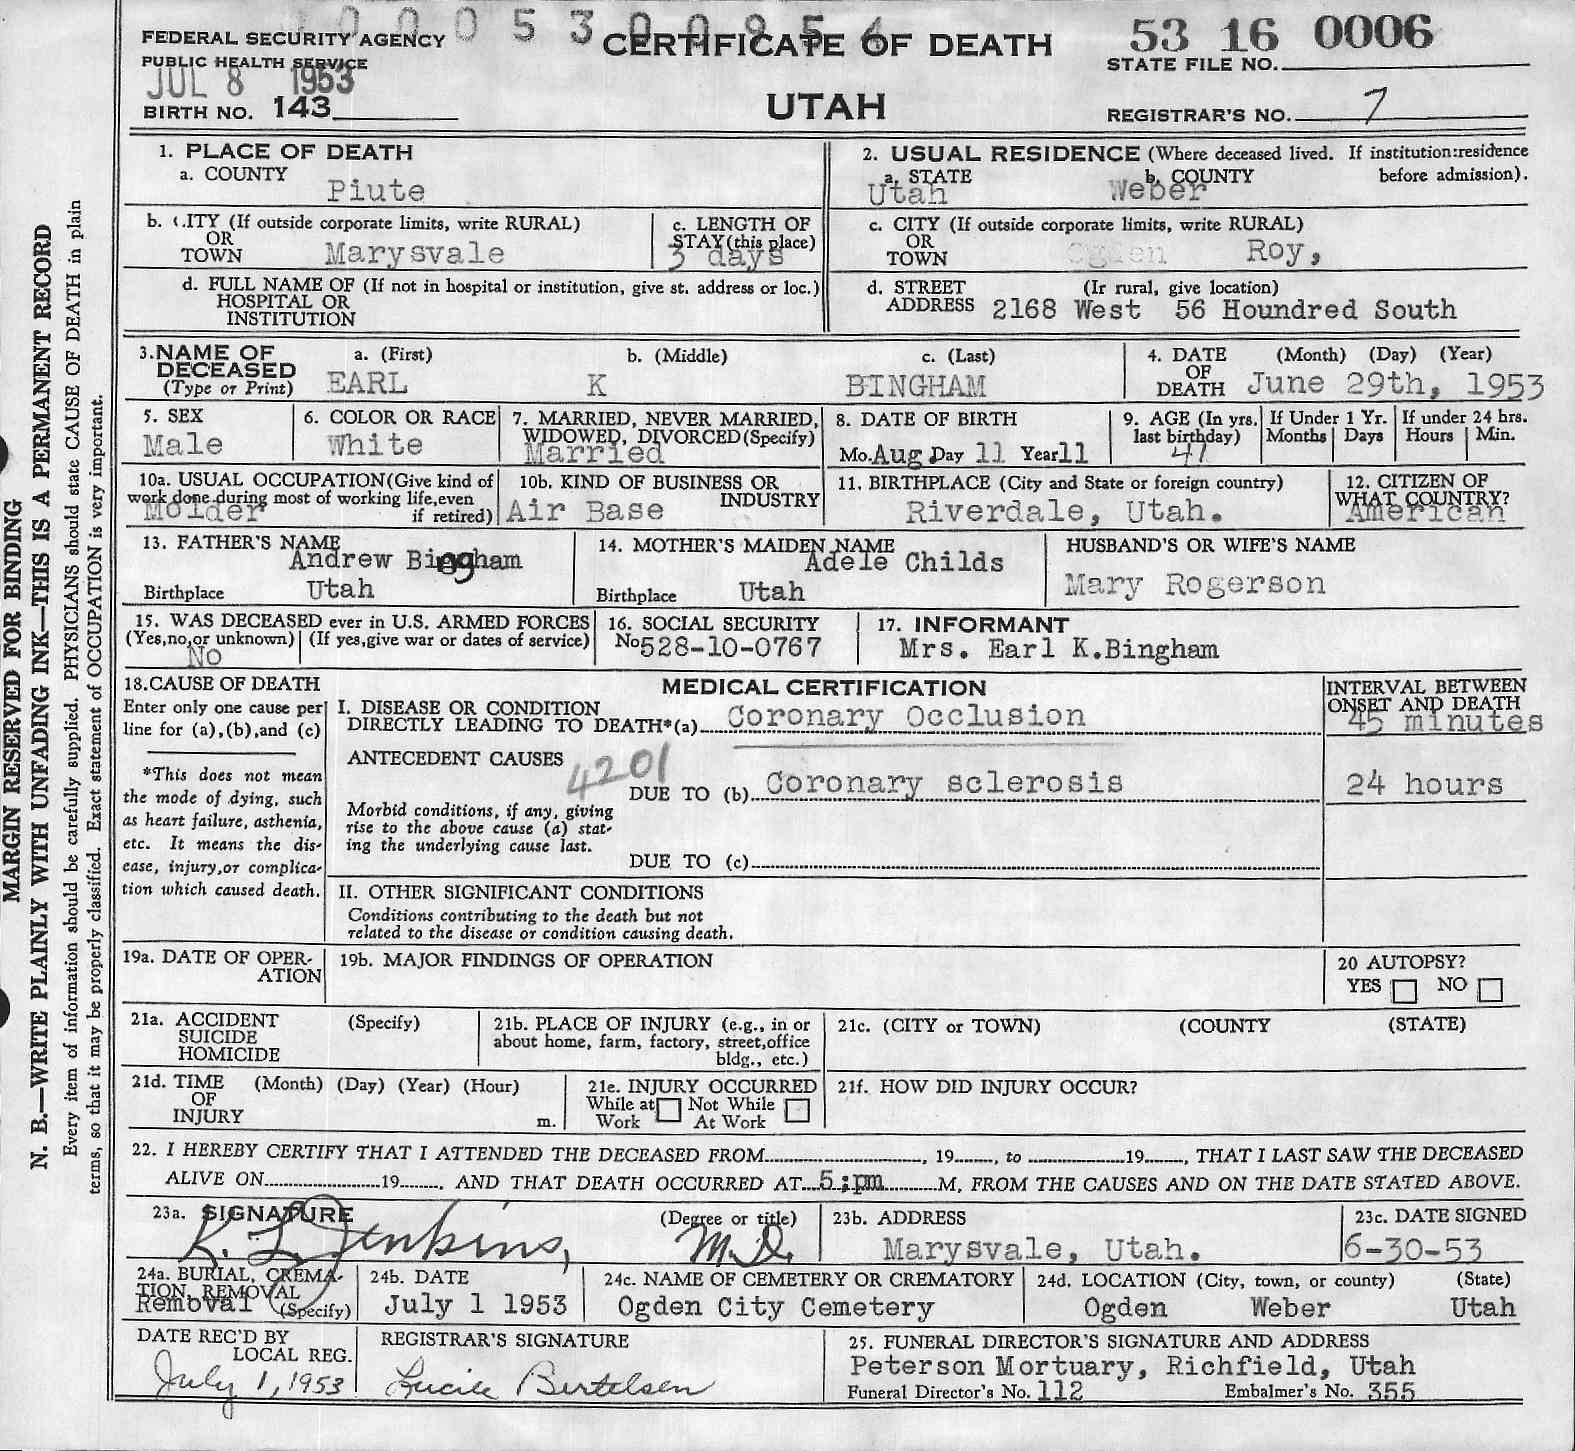 1 0 0 0 5 3 0 0 9 5 4
FEDERAL SECURITY AGENCY
PUBLIC HEALTH SERVICE
JUL 8 1953
BIRTH NO. 143
CERTIFICATE OF DEATH
UTAH
53 16 0006
STATE FILE NO.
REGISTRAR'S NO. 7
1. PLACE OF DEATH
a. COUNTY
Piute
2. USUAL RESIDENCE (Where deceased lived. If institution:residence before admission).
a. STATE b. COUNTY
Utah Weber
b. CITY (If outside corporate limits, write RURAL)
OR
TOWN Marysvale
c. LENGTH OF
STAY (this place)
3 days
c. CITY (If outside corporate limits, write RURAL)
OR
TOWN Ogden Roy,
d. FULL NAME OF (If not in hospital or institution, give st. address or loc.)
HOSPITAL OR
INSTITUTION
d. STREET (Ir rural, give location)
ADDRESS 2168 West 56 Houndred South
3.NAME OF DECEASED
(Type or Print)
a. (First) b. (Middle) c. (Last)
EARL K BINGHAM
4. DATE OF DEATH (Month) (Day) (Year)
June 29th, 1953
5. SEX
Male
6. COLOR OR RACE
White
7. MARRIED, NEVER MARRIED,
WIDOWED, DIVORCED(Specify)
Married
8. DATE OF BIRTH
Mo.Aug Day 11 Year11
9. AGE (In yrs. last birthday)
41
If Under 1 Yr.
Months Days
If under 24 hrs.
Hours Min.
10a. USUAL OCCUPATION(Give kind of
work done during most of working life,even
if retired)
Molder
10b. KIND OF BUSINESS OR INDUSTRY
Air Base
11. BIRTHPLACE (City and State or foreign country)
Riverdale, Utah.
12. CITIZEN OF
WHAT COUNTRY?
American
13. FATHER'S NAME
Andrew Bingham
Birthplace Utah
14. MOTHER'S MAIDEN NAME
Adele Childs
Birthplace Utah
HUSBAND'S OR WIFE'S NAME
Mary Rogerson
15. WAS DECEASED ever in U.S. ARMED FORCES
(Yes,no,or unknown) (If yes,give war or dates of service)
No
16. SOCIAL SECURITY
No528-10-0767
17. INFORMANT
Mrs. Earl K.Bingham
18.CAUSE OF DEATH
Enter only one cause per
line for (a),(b),and (c)
*This does not mean
the mode of dying, such
as heart failure, asthenia,
etc. It means the dis-
ease, injury,or complica-
tion which caused death.
MEDICAL CERTIFICATION
I. DISEASE OR CONDITION
DIRECTLY LEADING TO DEATH*(a) Coronary Occlusion
INTERVAL BETWEEN
ONSET AND DEATH
45 minutes
ANTECEDENT CAUSES
4201
DUE TO (b) Coronary sclerosis
24 hours
Morbid conditions, if any, giving
rise to the above cause (a) stat-
ing the underlying cause last.
DUE TO (c)
II. OTHER SIGNIFICANT CONDITIONS
Conditions contributing to the death but not
related to the disease or condition causing death.
19a. DATE OF OPER-
ATION
19b. MAJOR FINDINGS OF OPERATION
20 AUTOPSY?
YES NO
21a. ACCIDENT (Specify)
SUICIDE
HOMICIDE
21b. PLACE OF INJURY (e.g., in or
about home, farm, factory, street,office
bldg., etc.)
21c. (CITY or TOWN) (COUNTY (STATE)
21d. TIME (Month) (Day) (Year) (Hour)
OF
INJURY m.
21e. INJURY OCCURRED
While at Not While
Work At Work
21f. HOW DID INJURY OCCUR?
22. I HEREBY CERTIFY THAT I ATTENDED THE DECEASED FROM, 19, to 19, THAT I LAST SAW THE DECEASED
ALIVE ON 19, AND THAT DEATH OCCURRED AT 5:pm M, FROM THE CAUSES AND ON THE DATE STATED ABOVE.
23a. SIGNATURE (Degree or title)
K. L. Jenkins, M.D.
23b. ADDRESS
Marysvale, Utah.
23c. DATE SIGNED
6-30-53
24a. BURIAL, CREMA-
TION, REMOVAL
Removal (Specify)
24b. DATE
July 1 1953
24c. NAME OF CEMETERY OR CREMATORY
Ogden City Cemetery
24d. LOCATION (City, town, or county) (State)
Ogden Weber Utah
DATE REC'D BY
LOCAL REG.
July 1, 1953
REGISTRAR'S SIGNATURE
Lucile Bertelsen
25. FUNERAL DIRECTOR'S SIGNATURE AND ADDRESS
Peterson Mortuary, Richfield, Utah
Funeral Director's No. 112 Embalmer's No. 355
MARGIN RESERVED FOR BINDING
N. B.—WRITE PLAINLY WITH UNFADING INK—THIS IS A PERMANENT RECORD
Every item of information should be carefully supplied. PHYSICIANS should state CAUSE OF DEATH in plain
terms, so that it may be properly classified. Exact statement of OCCUPATION is very important.